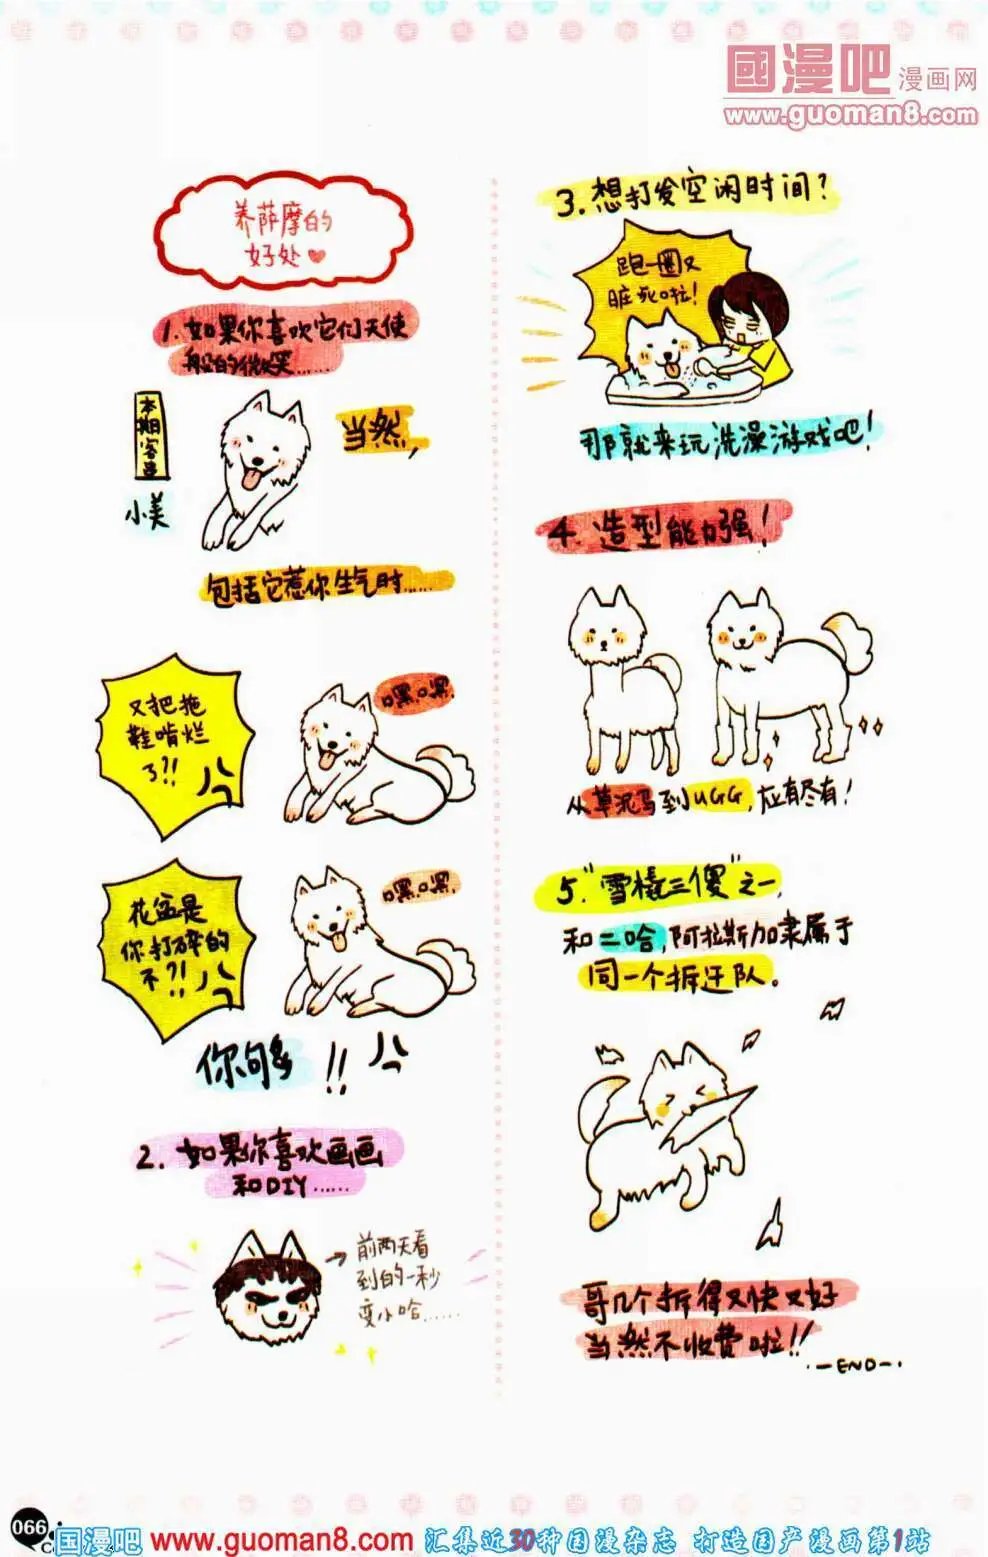 國漫吧漫画网
www.guoman8.com
养萨摩的
好处
1.如果你喜欢它们天使
般的微笑……
本期客串
小美
当然,
包括它惹你生气时……
又把拖
鞋啃烂
了?!
嘿.嘿.
花盆是
你打碎的
不?!
嘿.嘿.
你够!!
2.如果你喜欢画画
和DIY……
→前两天看
到的一秒
变小哈……
3.想打发空闲时间?
跑一圈又
脏死啦!
那就来玩洗澡游戏吧!
4.造型能力强!
从草泥马到UGG,应有尽有!
5."雪橇三傻"之一,
和二哈,阿拉斯加隶属于
同一个拆迁队。
哥几个拆得又快又好
当然不收费啦!!
·—END—·
066
国漫吧 www.guoman8.com 汇集近30种国漫杂志 打造国产漫画第1站